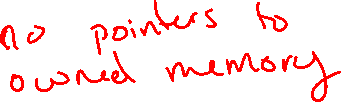 no pointers to
owned memory